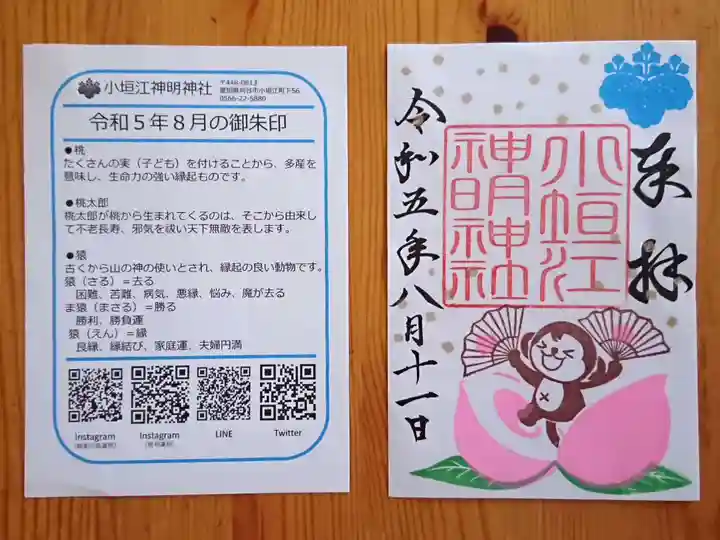 小垣江神明神社
〒448-0813
愛知県刈谷市小垣江町下56
0566-22-5880
令和5年8月の御朱印
●桃
たくさんの実（子ども）を付けることから、多産を
意味し、生命力の強い縁起ものです。
●桃太郎
桃太郎が桃から生まれてくるのは、そこから由来し
て不老長寿、邪気を祓い天下無敵を表します。
●猿
古くから山の神の使いとされ、縁起の良い動物です。
猿（さる）＝去る
困難、苦難、病気、悪縁、悩み、魔が去る
ま猿（まさる）＝勝る
勝利、勝負運
猿（えん）＝縁
良縁、縁結び、家庭運、夫婦円満
Instagram
Instagram
LINE
Twitter
奉拝
小垣江
神明神社
令和五年八月十一日